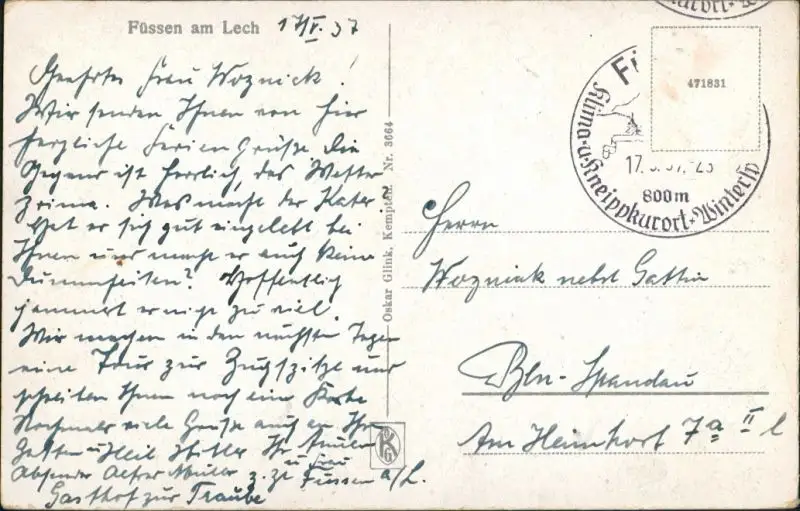 Füssen am Lech 17/V. 37
Geehrte Frau Wozniak!
Wir senden Ihnen von hier
herzliche Ferien Grüße. Die
Gegend ist herrlich, das Wetter
prima. Was macht der Kater?
Hat er sich gut eingelebt bei
Ihnen und macht er auch keine
Dummheiten? Hoffentlich
jammert er nicht zu viel.
Wir machen in den nächsten Tagen
eine Tour zur Zugspitze und
schreiben Ihnen noch eine Karte
Nochmals viele Grüße auch an Ihren
Gatten u Heil Hitler Ihr
u Frau
Absender Alfred Müller z. Zt Füssen a/L.
Gasthof zur Traube
Oskar Glink, Kempten. Nr. 3664
471831
Fü
17. 5. 37. -23
800m
Klima-u-Kneippkurort-Wintersp
Herrn
Wozniak nebst Gattin
Bln-Spandau
Am Heimhort 7a II l